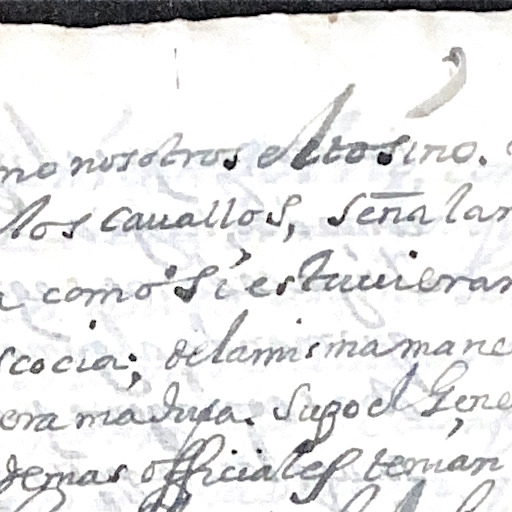 mo nosotros el tosino.
los cauallos, señalan
a como si estuuieran
scocia; de la misma mane
era madura. Supo el Gene
demas officiales tenian